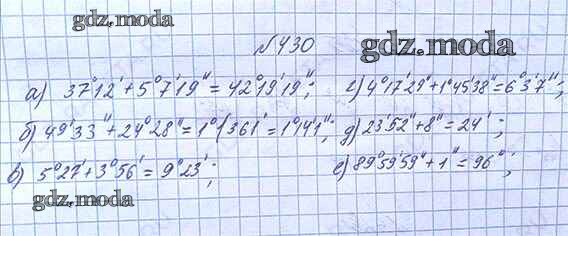 gdz.moda
№430
gdz.moda
а) 37°12' + 5°7'19" = 42°19'19"; г) 4°17'29" + 1°45'38" = 6°3'7";
б) 49'33" + 24°28" = 1°(361' = 1°14'1"; д) 23'52" + 8" = 24';
в) 5°27' + 3°56' = 9°23'; е) 89°59'59" + 1" = 96°;
gdz.moda